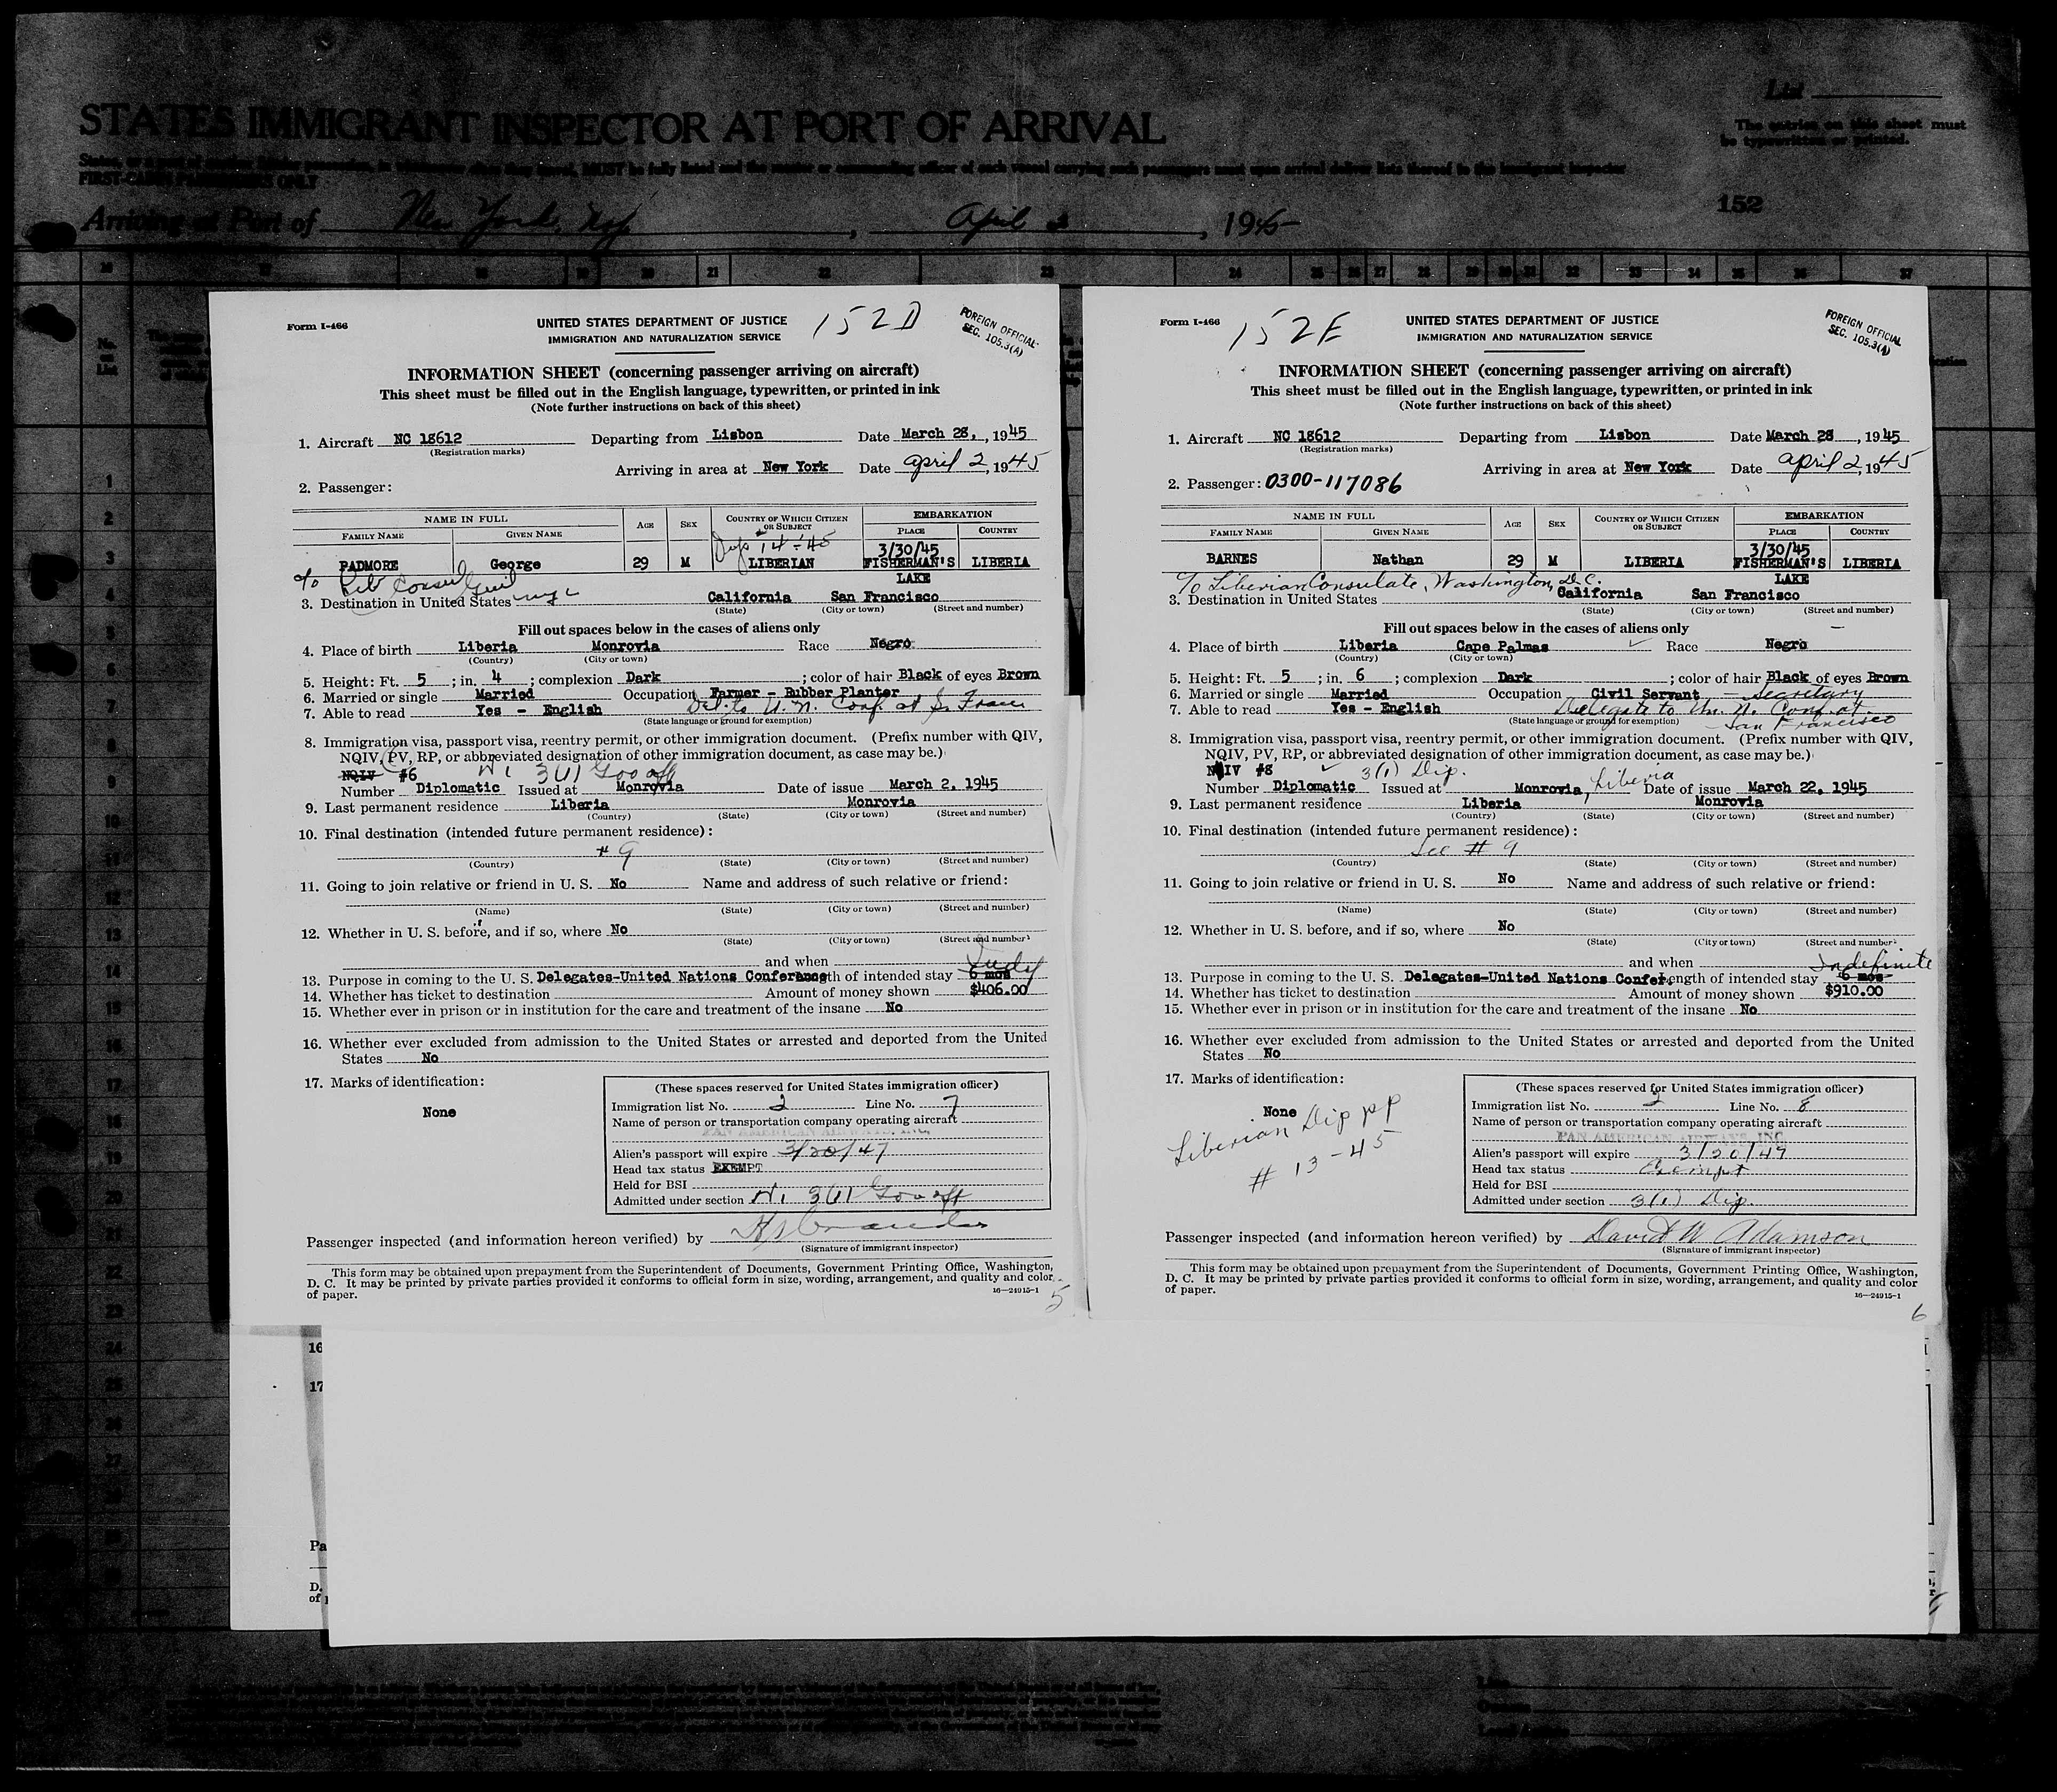 List
STATES IMMIGRANT INSPECTOR AT PORT OF ARRIVAL
The entries on this sheet must
be typewritten or printed.
FIRST-CABIN PASSENGERS ONLY
Arriving at Port of New York, N.Y., April 2, 1945
152
Form I-466
152D
FOREIGN OFFICIAL
SEC. 105.3(A)
UNITED STATES DEPARTMENT OF JUSTICE
IMMIGRATION AND NATURALIZATION SERVICE
INFORMATION SHEET (concerning passenger arriving on aircraft)
This sheet must be filled out in the English language, typewritten, or printed in ink
(Note further instructions on back of this sheet)
1. Aircraft NC 18612 Departing from Lisbon Date March 28, , 1945
(Registration marks)
Arriving in area at New York Date April 2, 1945
2. Passenger:
NAME IN FULL AGE SEX COUNTRY OF WHICH CITIZEN OR SUBJECT EMBARKATION
FAMILY NAME GIVEN NAME PLACE COUNTRY
Dip 14-45
3/30/45
PADMORE George 29 M LIBERIAN FISHERMAN'S LIBERIA
LAKE
c/o Lib Consul Genl nyc
3. Destination in United States California San Francisco
(State) (City or town) (Street and number)
Fill out spaces below in the cases of aliens only
4. Place of birth Liberia Monrovia Race Negro
(Country) (City or town)
5. Height: Ft. 5 ; in. 4 ; complexion Dark ; color of hair Black of eyes Brown
6. Married or single Married Occupation Farmer - Rubber Planter
7. Able to read Yes - English Del. to U.N. Conf at S. Fran
(State language or ground for exemption)
8. Immigration visa, passport visa, reentry permit, or other immigration document. (Prefix number with QIV,
NQIV, PV, RP, or abbreviated designation of other immigration document, as case may be.)
NQIV #6 3(1) Gov off
Number Diplomatic Issued at Monrovia Date of issue March 2, 1945
9. Last permanent residence Liberia Monrovia
(Country) (State) (City or town) (Street and number)
10. Final destination (intended future permanent residence):
#9
(Country) (State) (City or town) (Street and number)
11. Going to join relative or friend in U. S. No Name and address of such relative or friend:
(Name) (State) (City or town) (Street and number)
12. Whether in U. S. before, and if so, where No
(State) (City or town) (Street and number)
and when
Indef
13. Purpose in coming to the U. S. Delegates-United Nations Conference th of intended stay 6 mos
14. Whether has ticket to destination Amount of money shown $406.00
15. Whether ever in prison or in institution for the care and treatment of the insane No
16. Whether ever excluded from admission to the United States or arrested and deported from the United
States No
17. Marks of identification:
None
(These spaces reserved for United States immigration officer)
Immigration list No. 2 Line No. 7
Name of person or transportation company operating aircraft
PAN AMERICAN AIRWAYS, INC.
Alien's passport will expire 3/20/47
Head tax status EXEMPT
Held for BSI
Admitted under section 3(1) Gov off
Passenger inspected (and information hereon verified) by
(Signature of immigrant inspector)
This form may be obtained upon prepayment from the Superintendent of Documents, Government Printing Office, Washington,
D. C. It may be printed by private parties provided it conforms to official form in size, wording, arrangement, and quality and color
of paper.
16—24915-1
5
Form I-466
152E
FOREIGN OFFICIAL
SEC. 105.3(A)
UNITED STATES DEPARTMENT OF JUSTICE
IMMIGRATION AND NATURALIZATION SERVICE
INFORMATION SHEET (concerning passenger arriving on aircraft)
This sheet must be filled out in the English language, typewritten, or printed in ink
(Note further instructions on back of this sheet)
1. Aircraft NC 18612 Departing from Lisbon Date March 28 , 1945
(Registration marks)
Arriving in area at New York Date April 2, 1945
2. Passenger: 0300-117086
NAME IN FULL AGE SEX COUNTRY OF WHICH CITIZEN OR SUBJECT EMBARKATION
FAMILY NAME GIVEN NAME PLACE COUNTRY
3/30/45
BARNES Nathan 29 M LIBERIA FISHERMAN'S LIBERIA
LAKE
c/o Liberian Consulate, Washington, D.C.
3. Destination in United States California San Francisco
(State) (City or town) (Street and number)
Fill out spaces below in the cases of aliens only
4. Place of birth Liberia Cape Palmas Race Negro
(Country) (City or town)
5. Height: Ft. 5 ; in. 6 ; complexion Dark ; color of hair Black of eyes Brown
6. Married or single Married Occupation Civil Servant - Secretary
7. Able to read Yes - English Delegate to Un. N. Conf. at
(State language or ground for exemption) San Francisco
8. Immigration visa, passport visa, reentry permit, or other immigration document. (Prefix number with QIV,
NQIV, PV, RP, or abbreviated designation of other immigration document, as case may be.)
NQIV #8 3(1) Dip.
Number Diplomatic Issued at Monrovia, Liberia Date of issue March 22, 1945
9. Last permanent residence Liberia Monrovia
(Country) (State) (City or town) (Street and number)
10. Final destination (intended future permanent residence):
See #9
(Country) (State) (City or town) (Street and number)
11. Going to join relative or friend in U. S. No Name and address of such relative or friend:
(Name) (State) (City or town) (Street and number)
12. Whether in U. S. before, and if so, where No
(State) (City or town) (Street and number)
and when
Indefinite
13. Purpose in coming to the U. S. Delegates-United Nations Confer. Length of intended stay 6 mos
14. Whether has ticket to destination Amount of money shown $910.00
15. Whether ever in prison or in institution for the care and treatment of the insane No
16. Whether ever excluded from admission to the United States or arrested and deported from the United
States No
17. Marks of identification:
None
Liberian Dip pp
# 13-45
(These spaces reserved for United States immigration officer)
Immigration list No. 2 Line No. 8
Name of person or transportation company operating aircraft
PAN AMERICAN AIRWAYS, INC.
Alien's passport will expire 3/20/47
Head tax status Exempt
Held for BSI
Admitted under section 3(1) Dip.
Passenger inspected (and information hereon verified) by David W Adamson
(Signature of immigrant inspector)
This form may be obtained upon prepayment from the Superintendent of Documents, Government Printing Office, Washington,
D. C. It may be printed by private parties provided it conforms to official form in size, wording, arrangement, and quality and color
of paper.
16—24915-1
6
16
17
Pa
D.
of